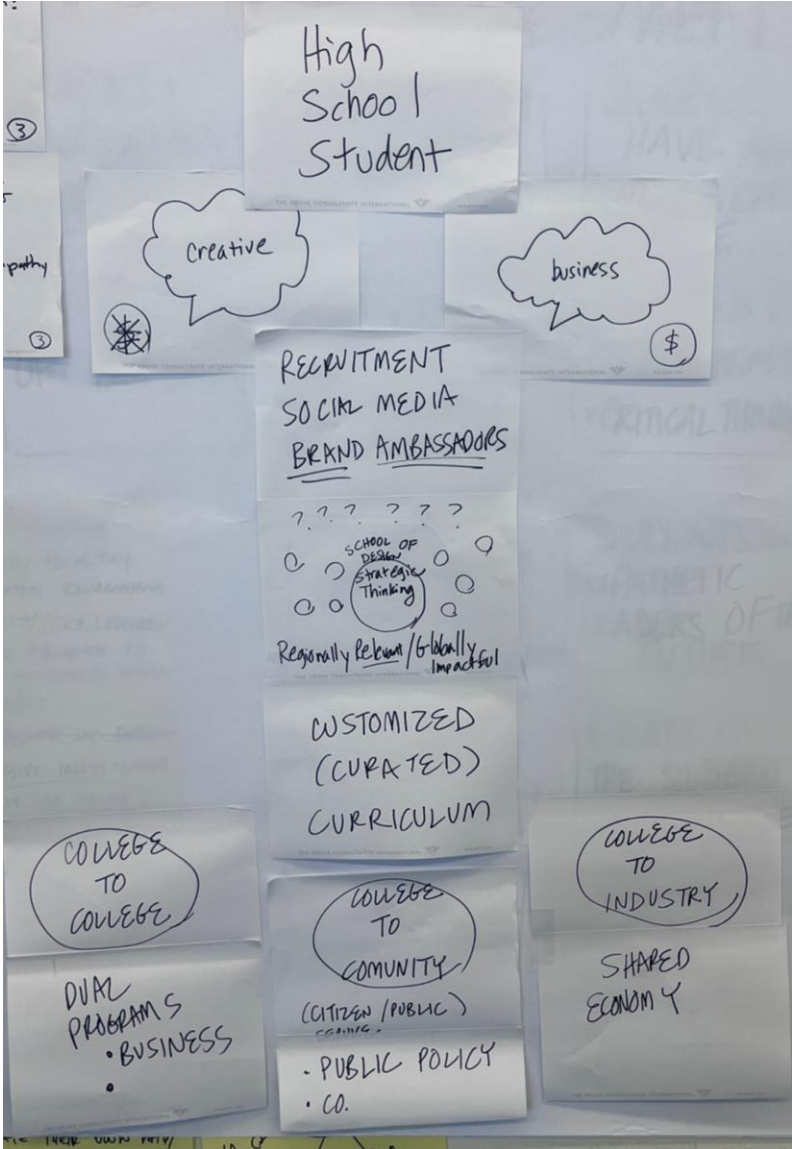 High
School
Student
THE GROVE CONSULTANTS INTERNATIONAL
3
pathy
3
creative
business
$
RECRUITMENT
SOCIAL MEDIA
BRAND AMBASSADORS
? ? ? ? ? ?
SCHOOL OF
DESIGN
Strategic
Thinking
Regionally Relevant / Globally
Impactful
CUSTOMIZED
(CURATED)
CURRICULUM
COLLEGE
TO
COLLEGE
DUAL
PROGRAMS
• BUSINESS
•
COLLEGE
TO
COMUNITY
(CITIZEN / PUBLIC)
• PUBLIC POLICY
• CO.
COLLEGE
TO
INDUSTRY
SHARED
ECONOMY
THEIR OWN